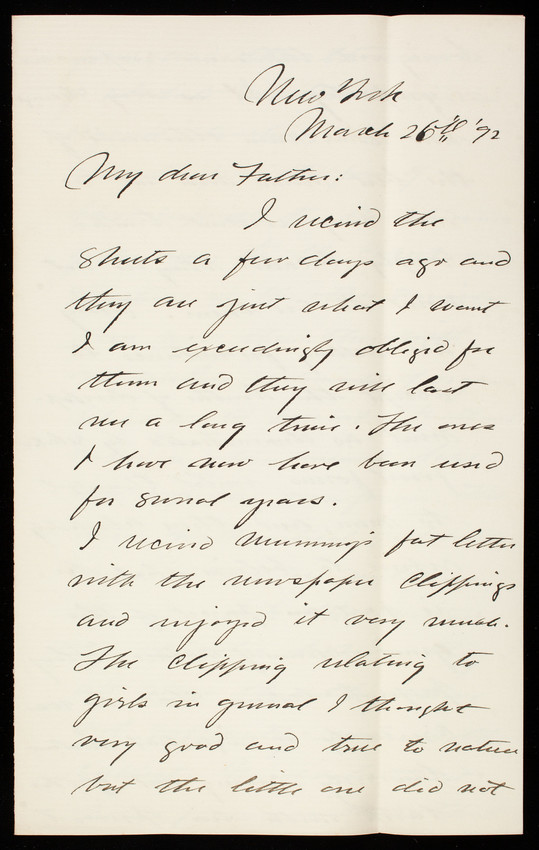 New York
March 26th '92
My dear Father:
I recived the
Sheets a few days ago and
they are just what I want
I am exceedingly obliged for
them and they will last
me a long time. The ones
I have now have been used
for several years.
I recived Mummy's fat letter
with the newspaper clippings
and enjoyed it very much.
The clipping relating to
girls in general I thought
very good and true to nature
but the little one did not